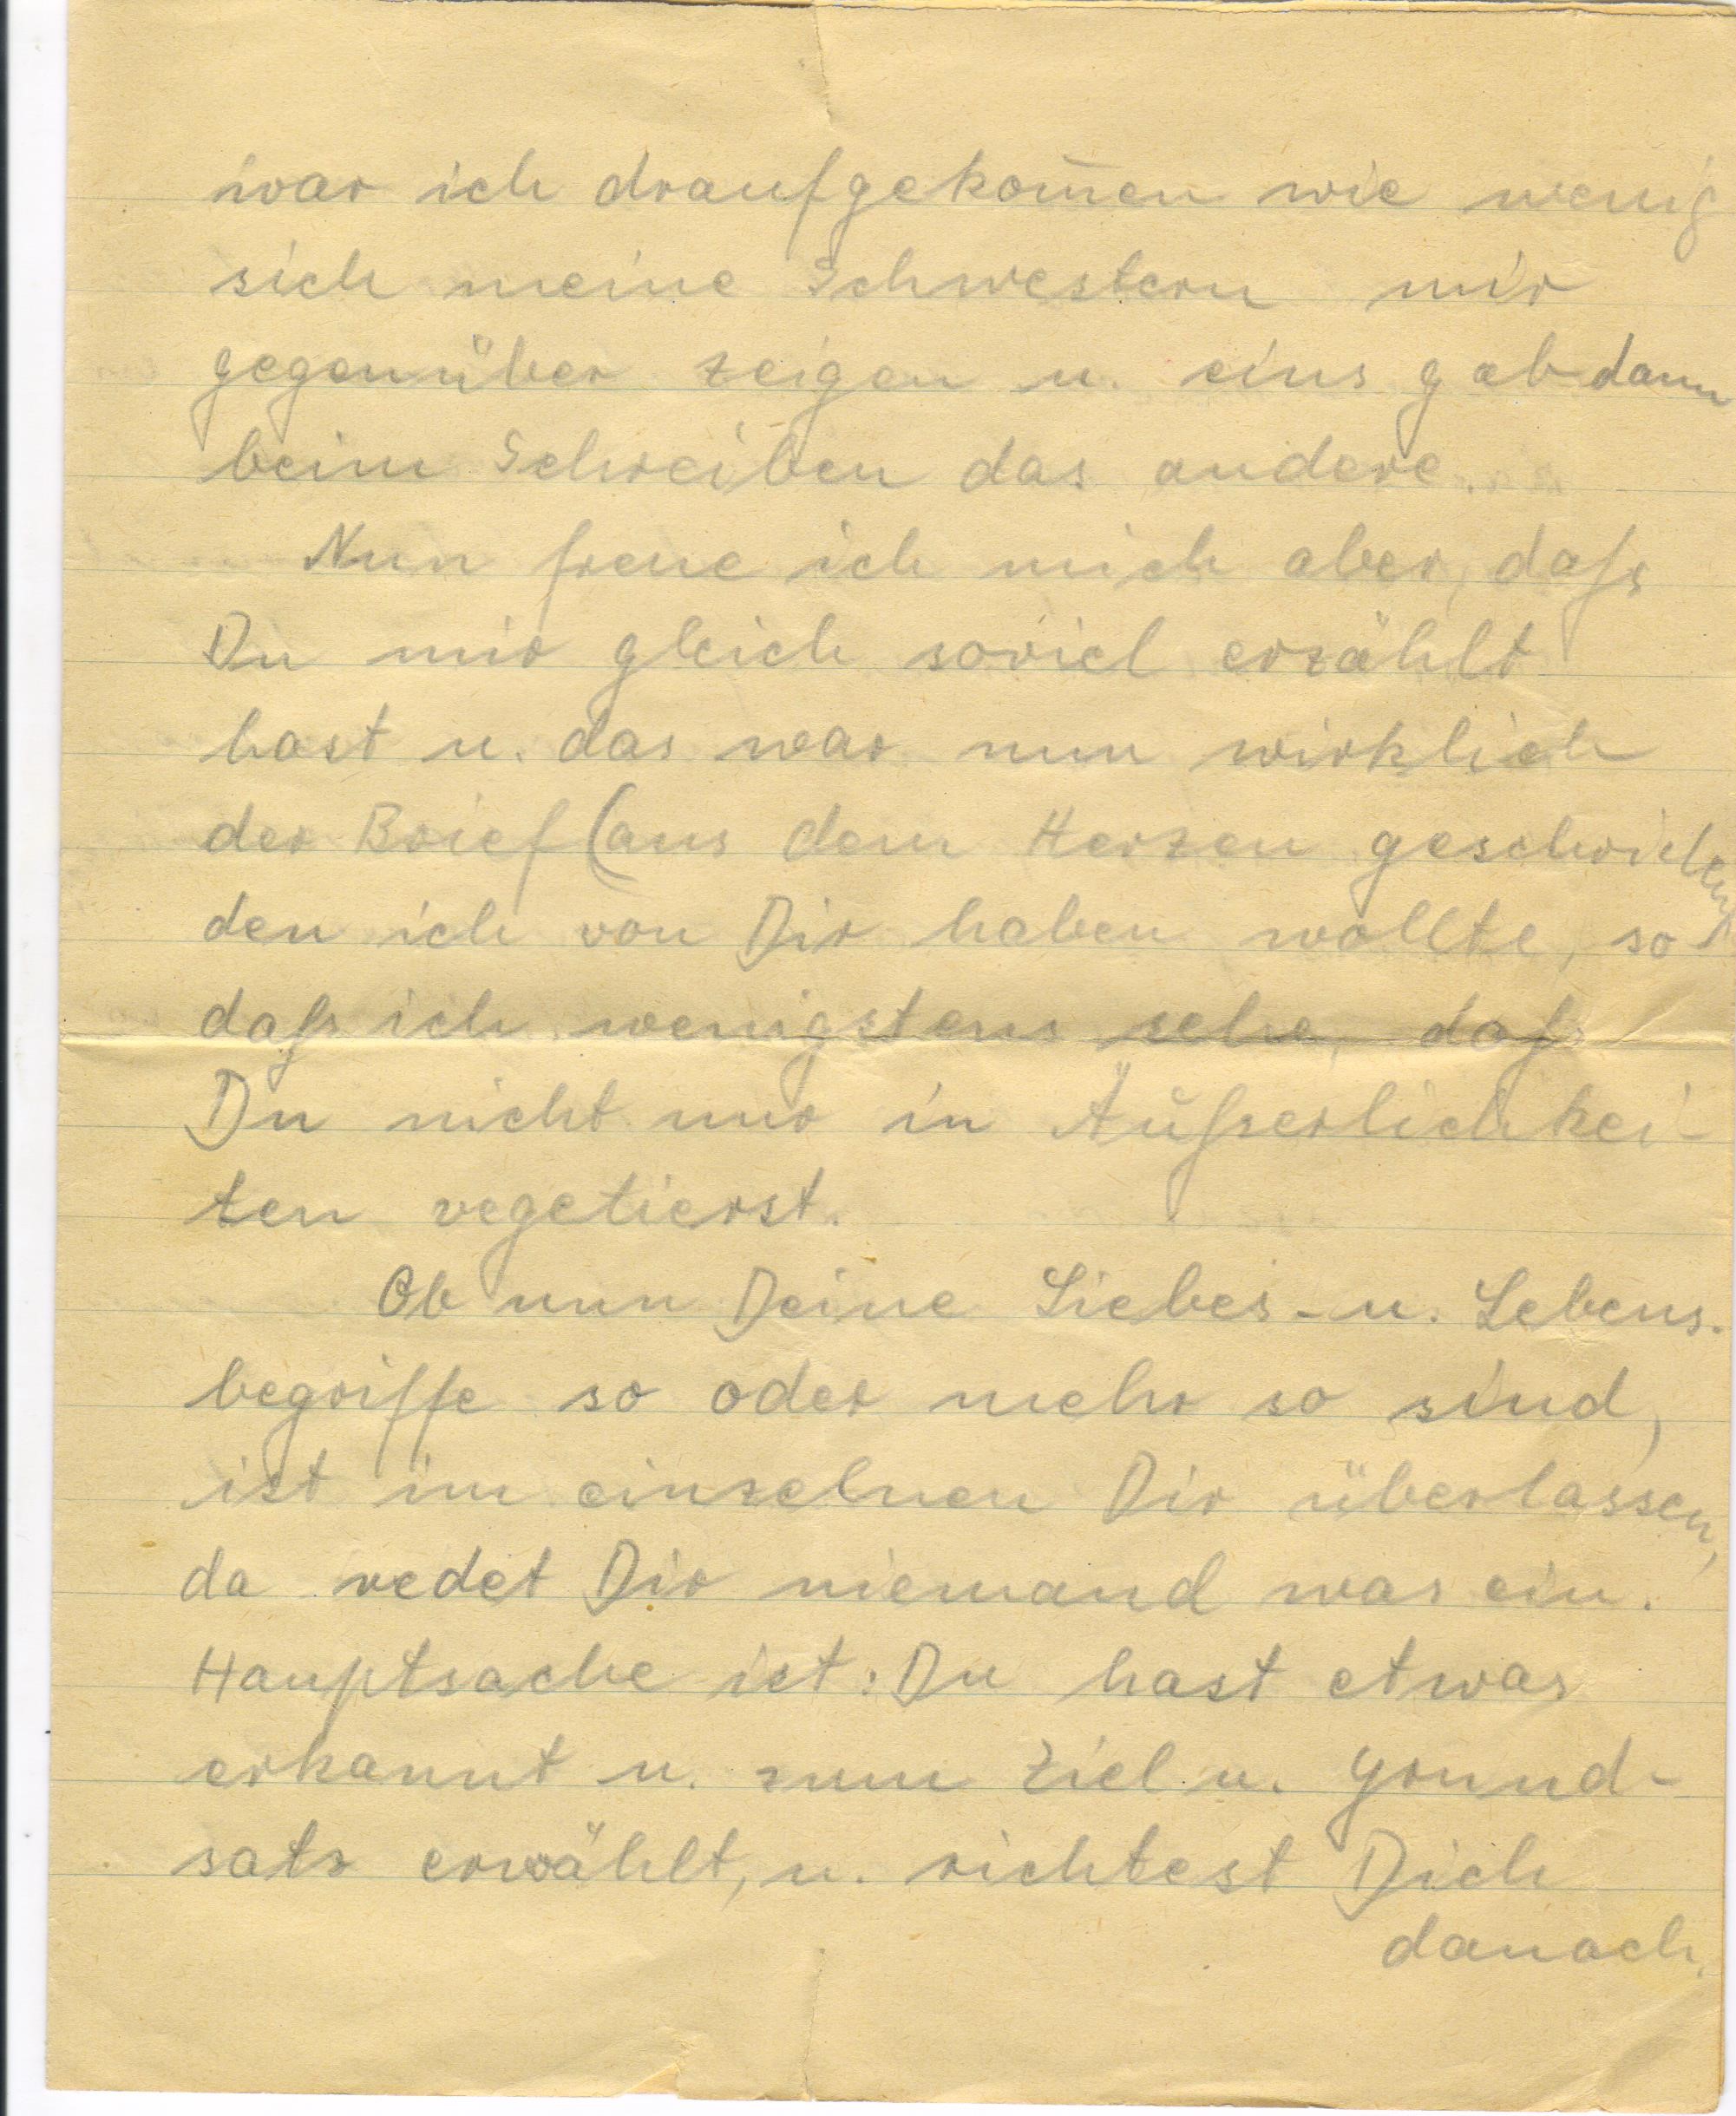 war ich draufgekom̄en wie wenig
sich meine Schwestern mir
gegenüber zeigen u. eins gab dann
beim Schreiben das andere.
Nun freue ich mich aber, daſs
Du mir gleich soviel erzählt
hast u. das war nun wirklich
der Brief (aus dem Herzen geschrieben)
den ich von Dir haben wollte, so
daſs ich wenigstens sehe, daſs
Du nicht nur in Äuſserlichkei-
ten vegetierst.
Ob nun Deine Liebes- u. Lebens-
begriffe so oder mehr so sind,
ist im einzelnen Dir überlassen,
da redet Dir niemand was ein.
Hauptsache ist: Du hast etwas
erkannt u. zum Ziel u. Grund-
satz erwählt, u. richtest Dich
danach.